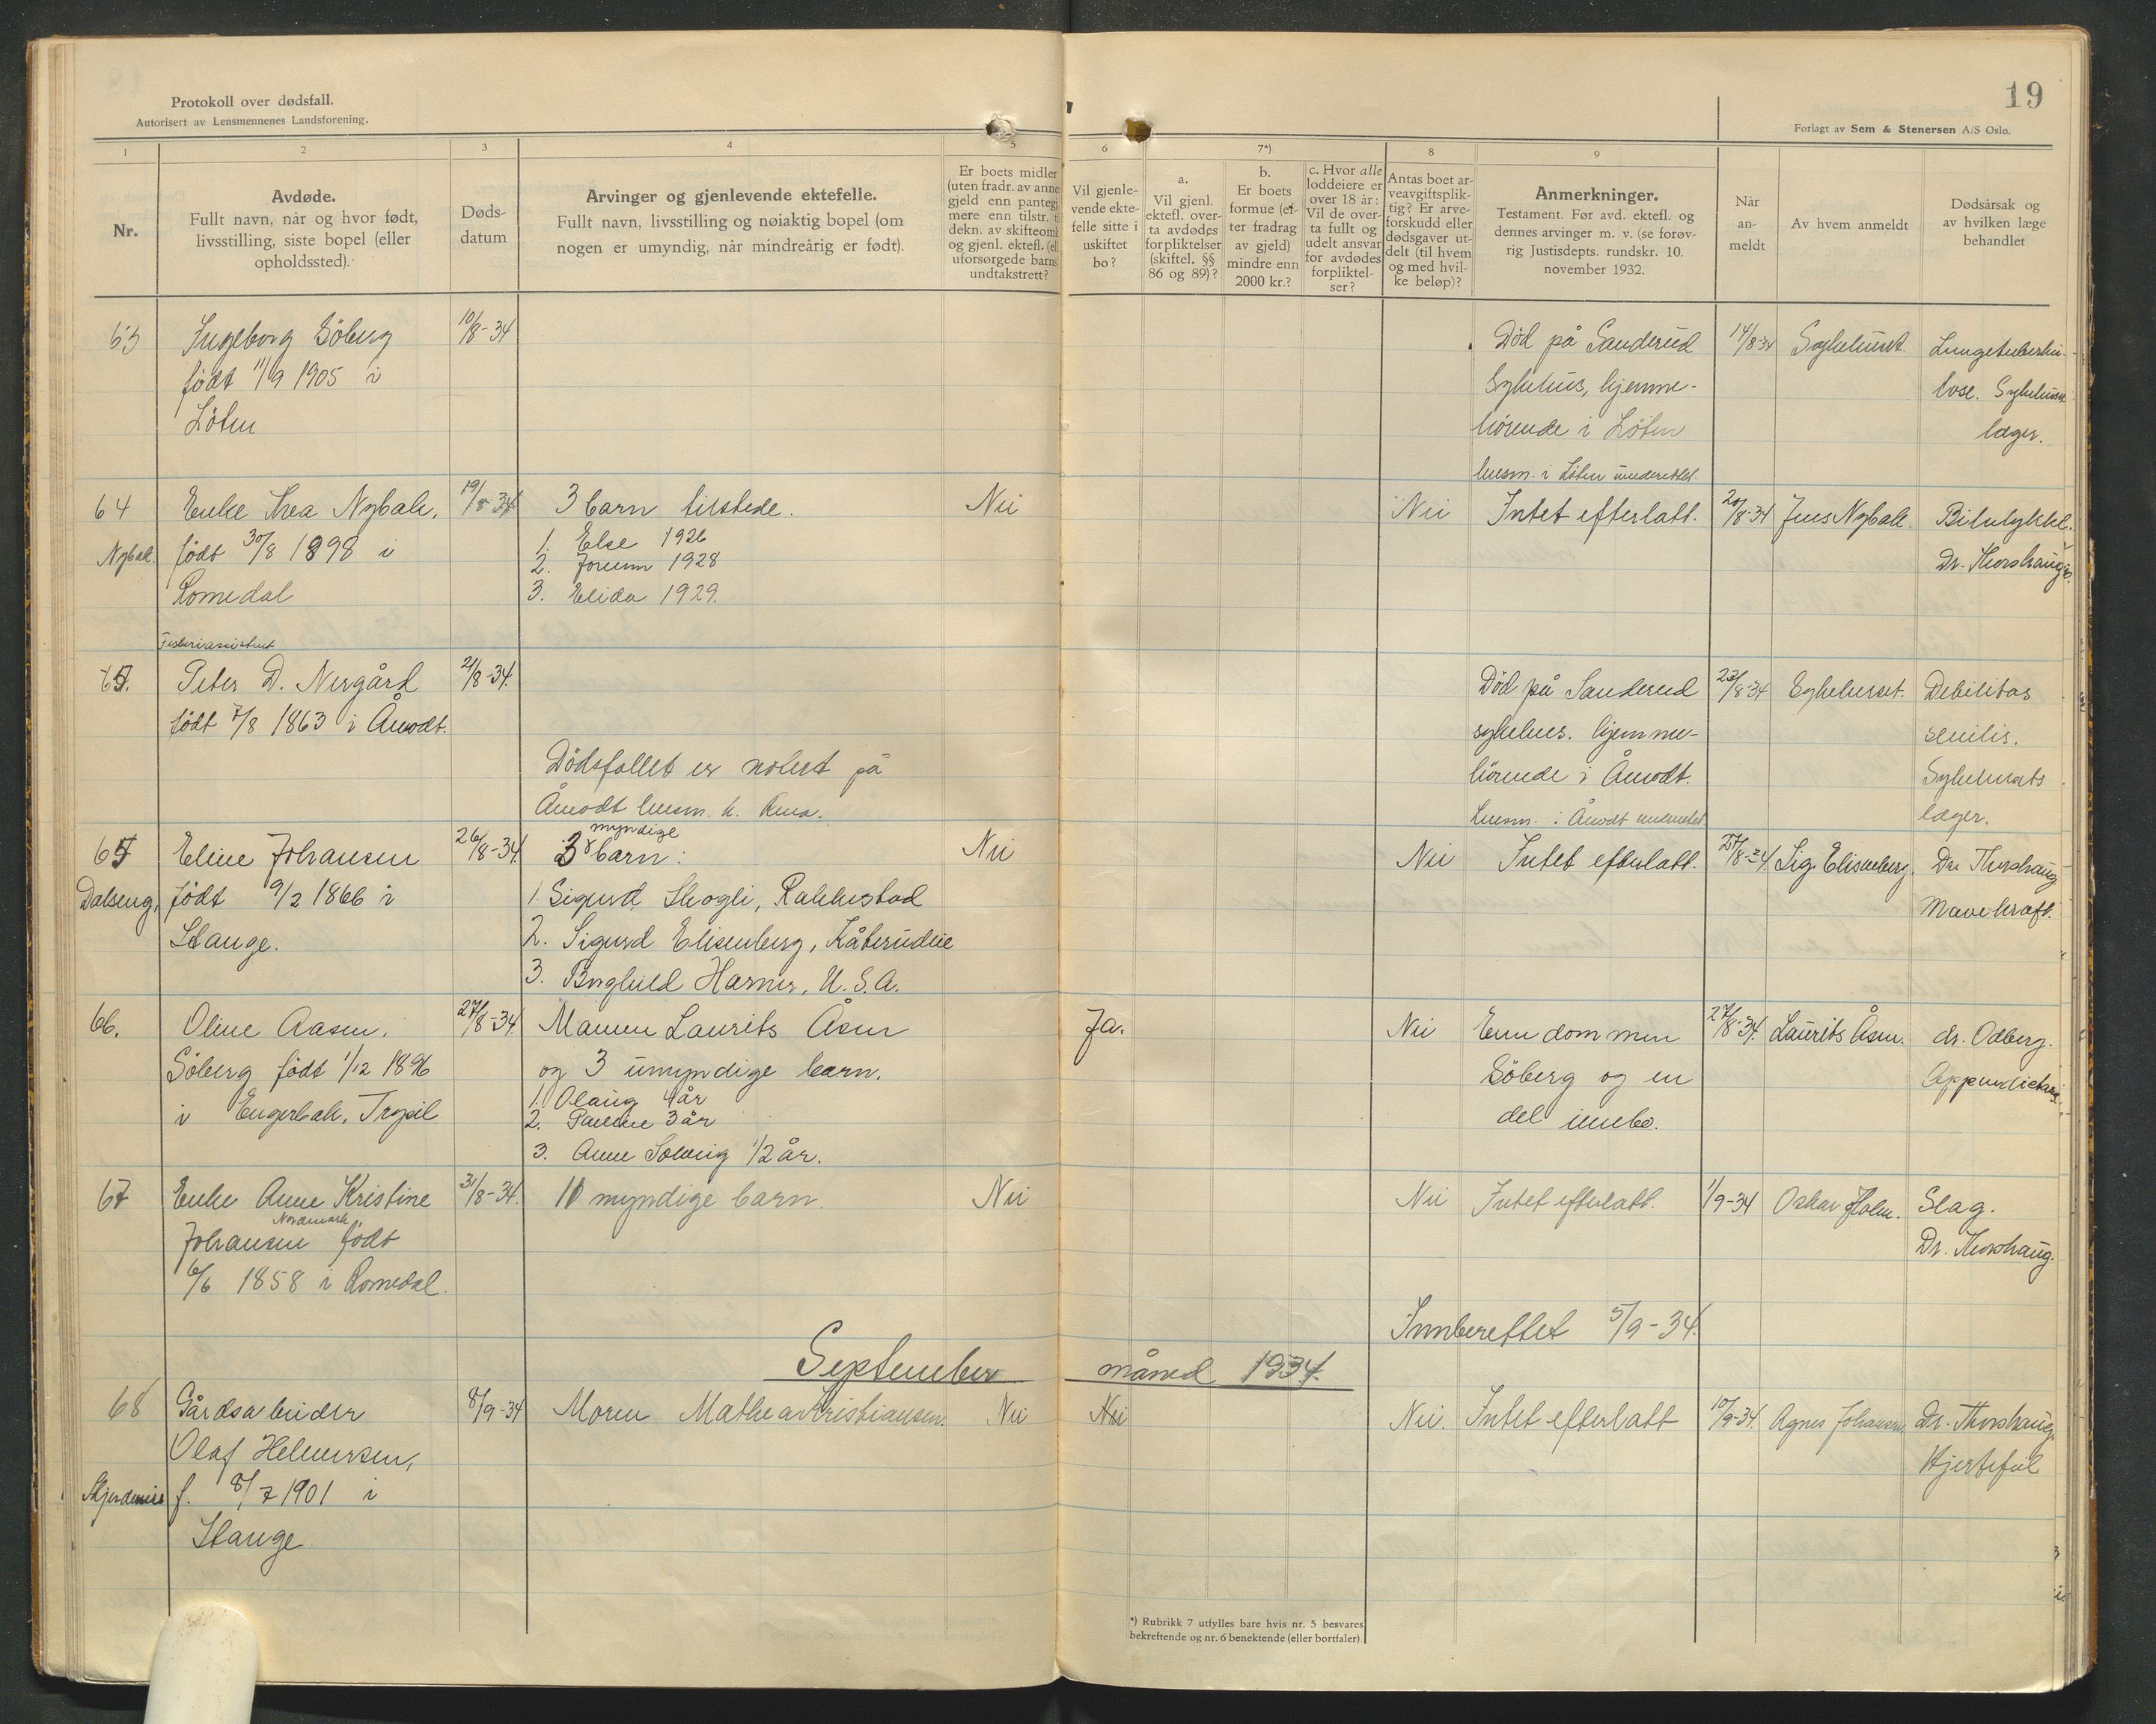 Protokoll over dødsfall.
Autorisert av Lensmennenes Landsforening.
19
Forlagt av Sem & Stenersen A/S Oslo.
1
2
3
4
5
6
7*)
8
9
Nr.
Avdøde.
Fullt navn, når og hvor født,
livsstilling, siste bopel (eller
opholdssted).
Døds-
datum
Arvinger og gjenlevende ektefelle.
Fullt navn, livsstilling og nøiaktig bopel (om
nogen er umyndig, når mindreårig er født).
Er boets midler
(uten fradr. av annen
gjeld enn pantegj
mere enn tilstr. t
dekn. av skifteomk
og gjenl. ektef. (ell
uforsørgede barns
undtakstrett?
Vil gjenle-
vende ekte-
felle sitte i
uskiftet
bo?
a.
Vil gjenl.
ektefl. over-
ta avdødes
forpliktelser
(skiftel. §§
86 og 89)?
b.
Er boets
formue (ef-
ter fradrag
av gjeld)
mindre enn
2000 kr.?
c. Hvor alle
loddeiere er
over 18 år:
Vil de over-
ta fullt og
udelt ansvar
for avdødes
forpliktel-
ser?
Antas boet ar-
veavgiftsplik-
tig? Er arve-
forskudd eller
dødsgaver ut-
delt (til hvem
og med hvil-
ke beløp)?
Anmerkninger.
Testament. Før avd. ektefl. og
dennes arvinger m. v. (se forøv-
rig Justisdepts. rundskr. 10.
november 1932.
Når
an-
meldt
Av hvem anmeldt
Dødsårsak og
av hvilken læge
behandlet
63
Ingeborg Söberg
født 11/9 1905 i
Löten
10/8-34
Död på Sanderud
Sykehus, hjemme-
hörende i Löten
lensm. i Löten underrettet.
14/8-34
Sykehuset.
Lungetuberku-
lose. Sykehusets
læger.
64
Nybak.
Enke Thea Nybak,
født 30/8 1898 i
Romedal
19/8-34
3 barn tilstede.
1. Else 1926
2. Jorunn 1928
3. Elida 1929.
Nei
Nei
Intet efterlatt.
20/8-34
Jens Nybak.
Bilulykke.
Dr. Thorshaug
Peter D. Nergård
født 7/8 1863 i Åmodt.
21/8-34.
Dödsfallet er notert på
Åmodt lensm. k. Rena.
Död på Sanderud
sykehus. hjemme-
hörende i Åmodt.
Lensm. i Åmodt underrettet
23/8-34
Sykehuset.
Debilitas
senilis.
Sykehusets
læger.
65
Dalseng,
Eline Johansen
født 9/2 1866 i
Stange.
26/8-34
myndige
3 barn:
1. Sigurd Skogli, Rakkestad
2. Sigurd Elisenberg, Kåterudlie
3. Borghild Harner, U.S.A.
Nei
Nei
Intet efterlatt.
27/8-34.
Sig. Elisenberg.
Dr. Thorshaug
Mavekræft.
66.
Oline Aasen,
Söberg født 1/12 1896
i Engerbak, Trysil
27/8-34.
Mannen Laurits Åsen
og 3 umyndige barn.
1. Olaug 4 år
2. Pauline 3 år
3. Anne Solveig 1/2 år.
Ja.
Nei
Eiendommen
Söberg og en
del innbo.
27/8-34.
Laurits Åsen.
dr. Odberg.
Appendicitis.
67
Enke Anne Kristine
Nordmark,
Johansen født
6/6 1858 i Romedal.
31/8-34.
11 myndige barn.
Nei
Nei
Intet efterlatt.
1/9-34
Oskar Holm.
Slag.
Dr. Thorshaug.
Innberettet 5/9-34.
September måned 1934.
68
Gårdsarbeider
Olaf Helmersen,
f. 8/7 1901 i
Stange
8/9-34
Moren Mathea Kristiansen.
Nei
Nei
Nei.
Intet efterlatt
10/9-34.
Agnes Johansen
Dr. Thorshaug.
Hjertefeil
*) Rubrikk 7 utfylles bare hvis nr. 5 besvares
bekreftende og nr. 6 benektende (eller bortfaler)